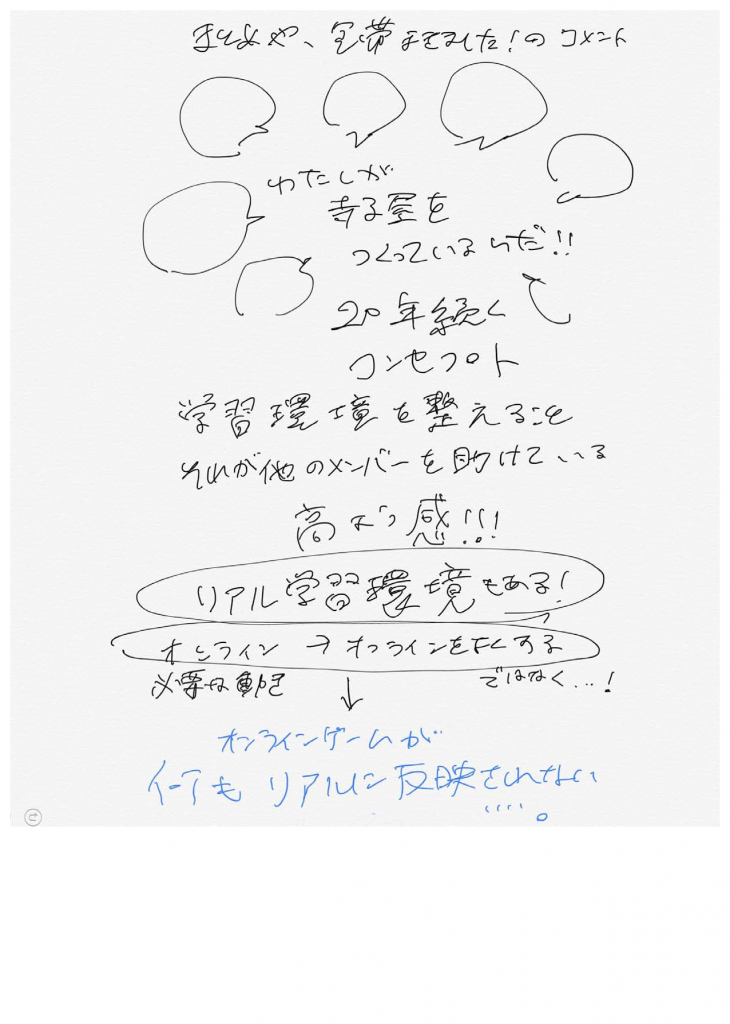 まとめや、全部できました!のコメント
わたしが
寺子屋を
つくっているんだ!!
20年続く
コンセプト
学習環境を整えること
それが他のメンバーを助けている
高よう感!!!
リアル学習環境もある!
オンライン → オンラインをよくする
必要な動起
ではなく...!
オンラインゲームが
何もリアルに反映されない
....。